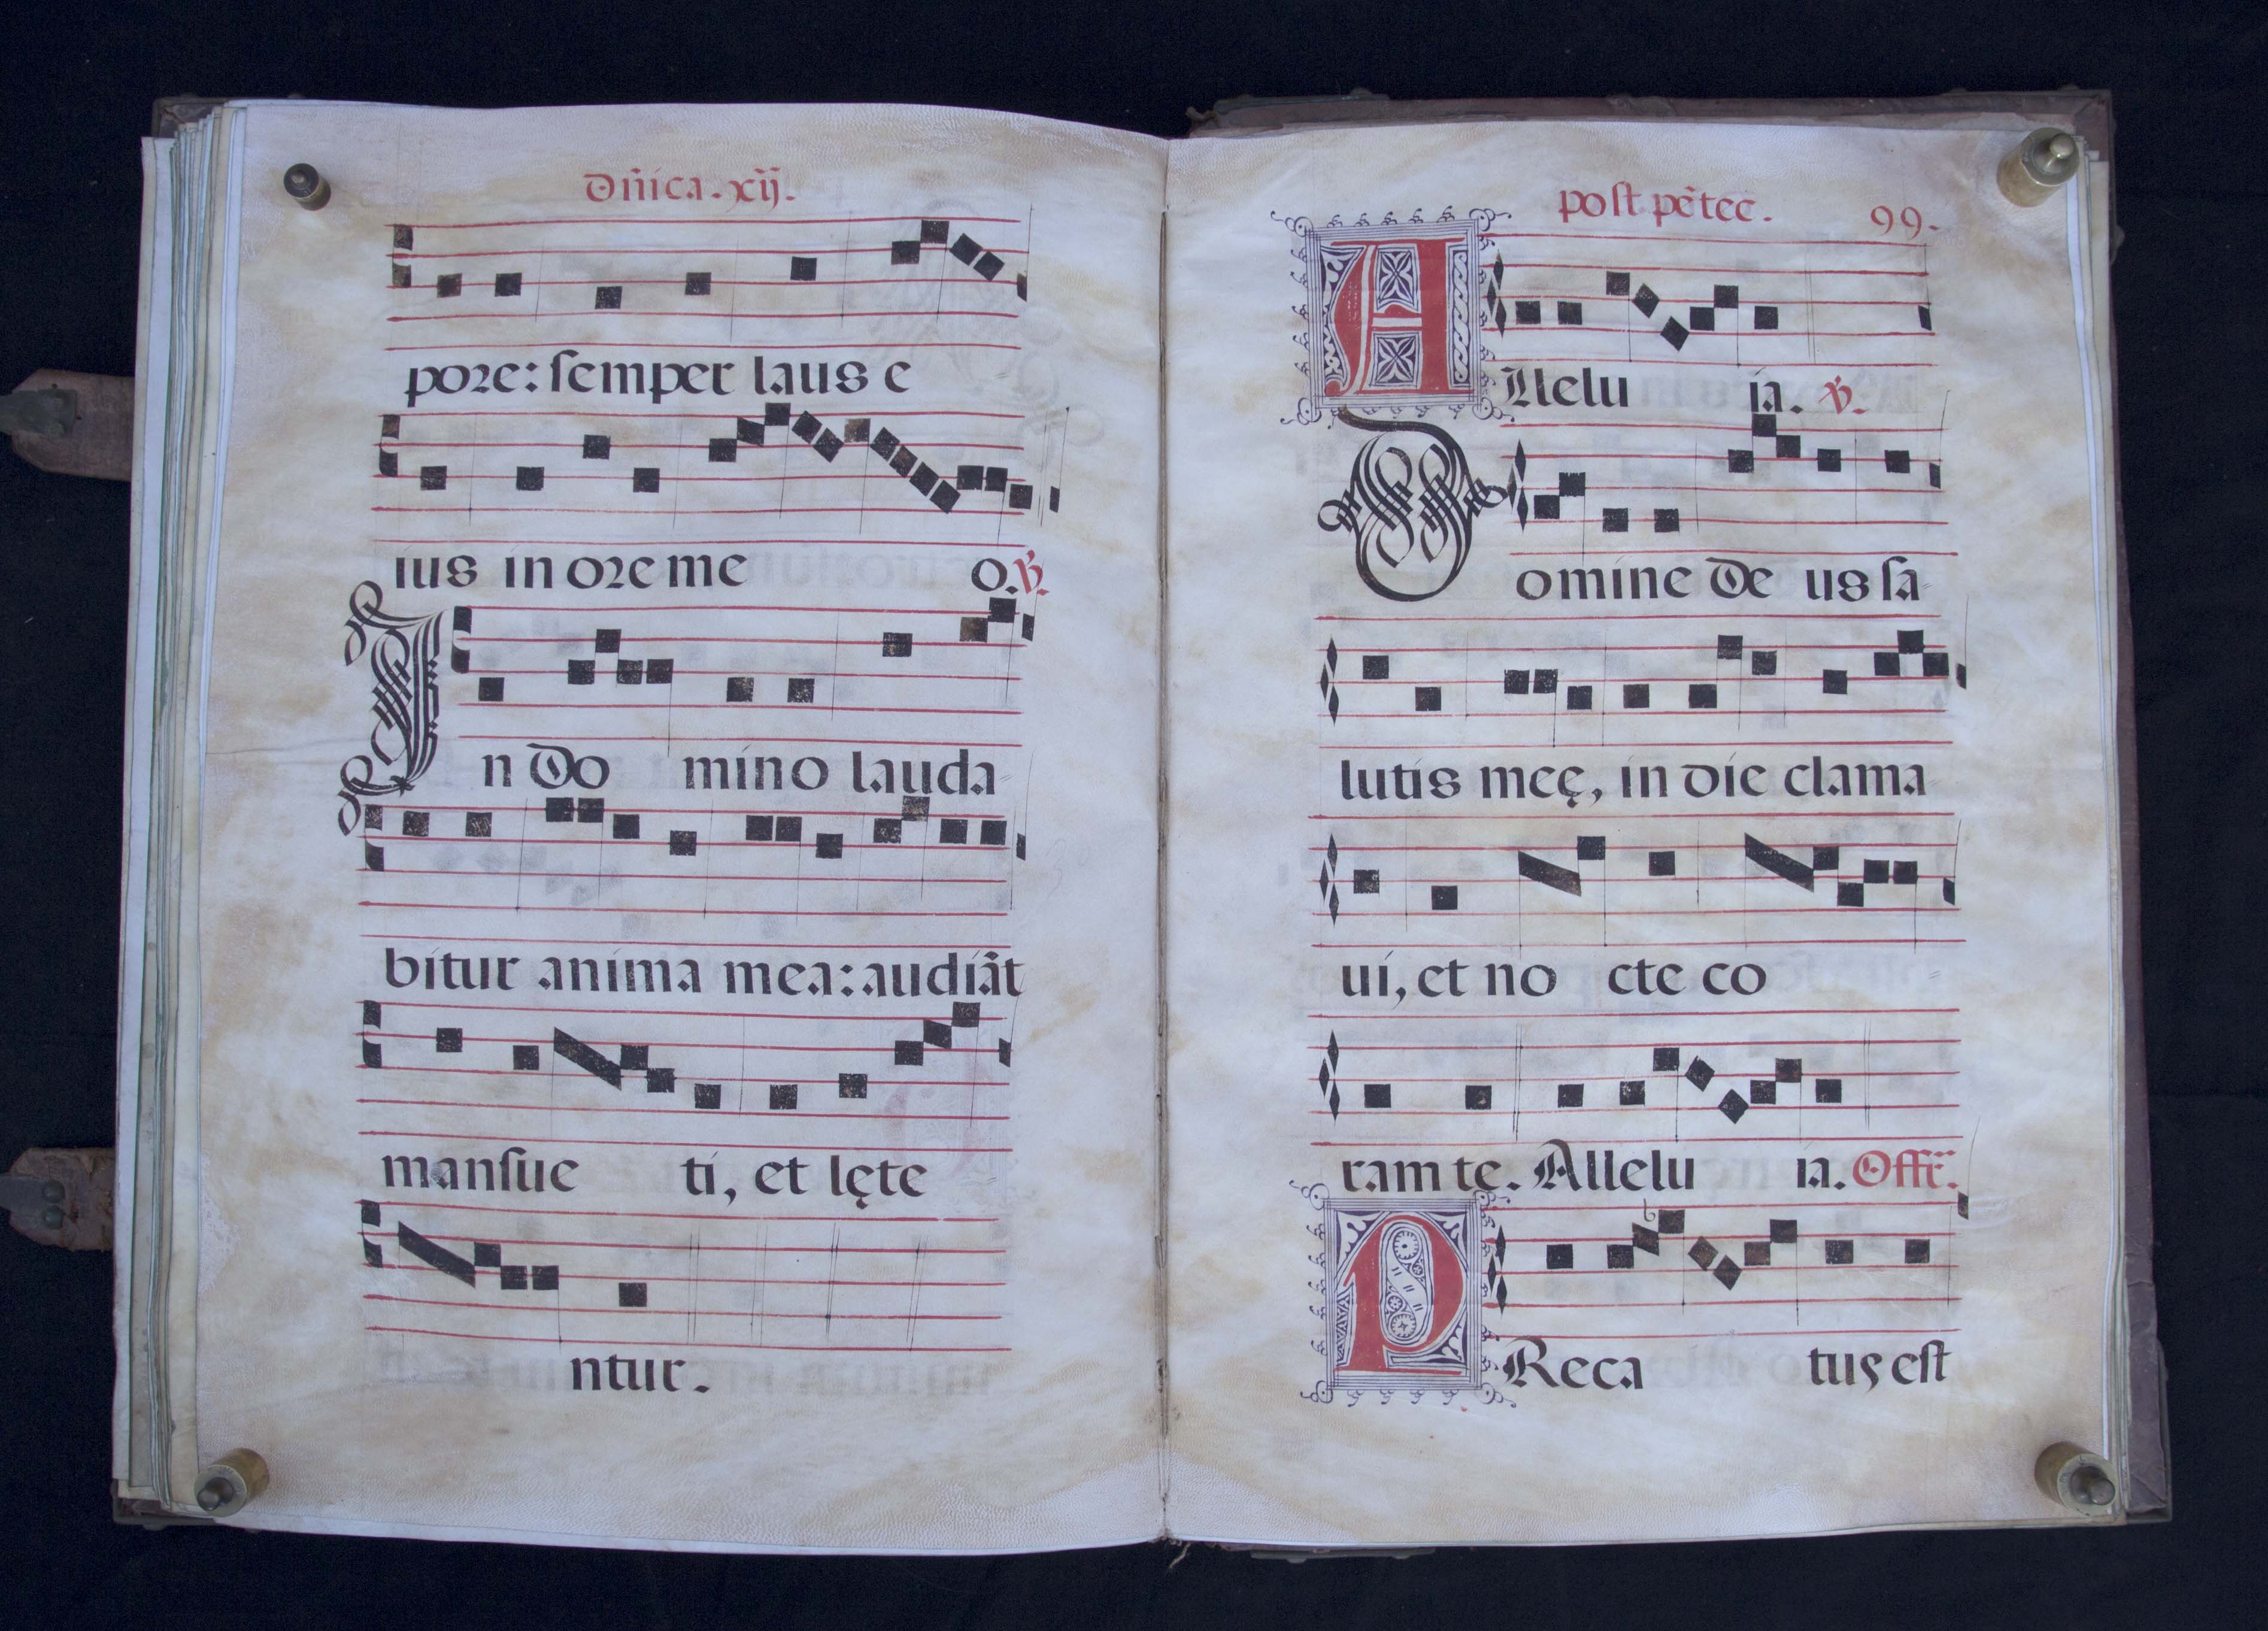 Dñica. xij.
pore: ſemper laus e
ius in ore me o. ℣.
In Do mino lauda
bitur anima mea: audiãt
manſue ti, et lęte
ntur.
poſt pẽtec. 99.
Allelu ia. ℣.
Domine De us ſa
lutis meę, in die clama
ui, et no cte co
ram te. Allelu ia. Offr̃.
PReca tuꝰ eſt